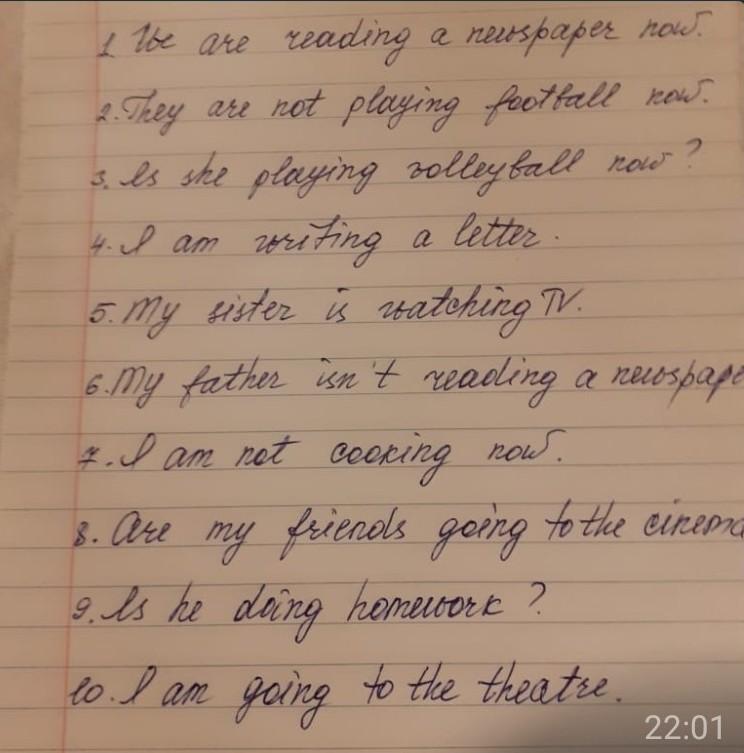 1. We are reading a newspaper now.
2. They are not playing football now.
3. Is she playing volleyball now?
4. I am writing a letter.
5. My sister is watching TV.
6. My father isn't reading a newspape
7. I am not cooking now.
8. Are my friends going to the cinema
9. Is he doing homework?
10. I am going to the theatre.
22:01